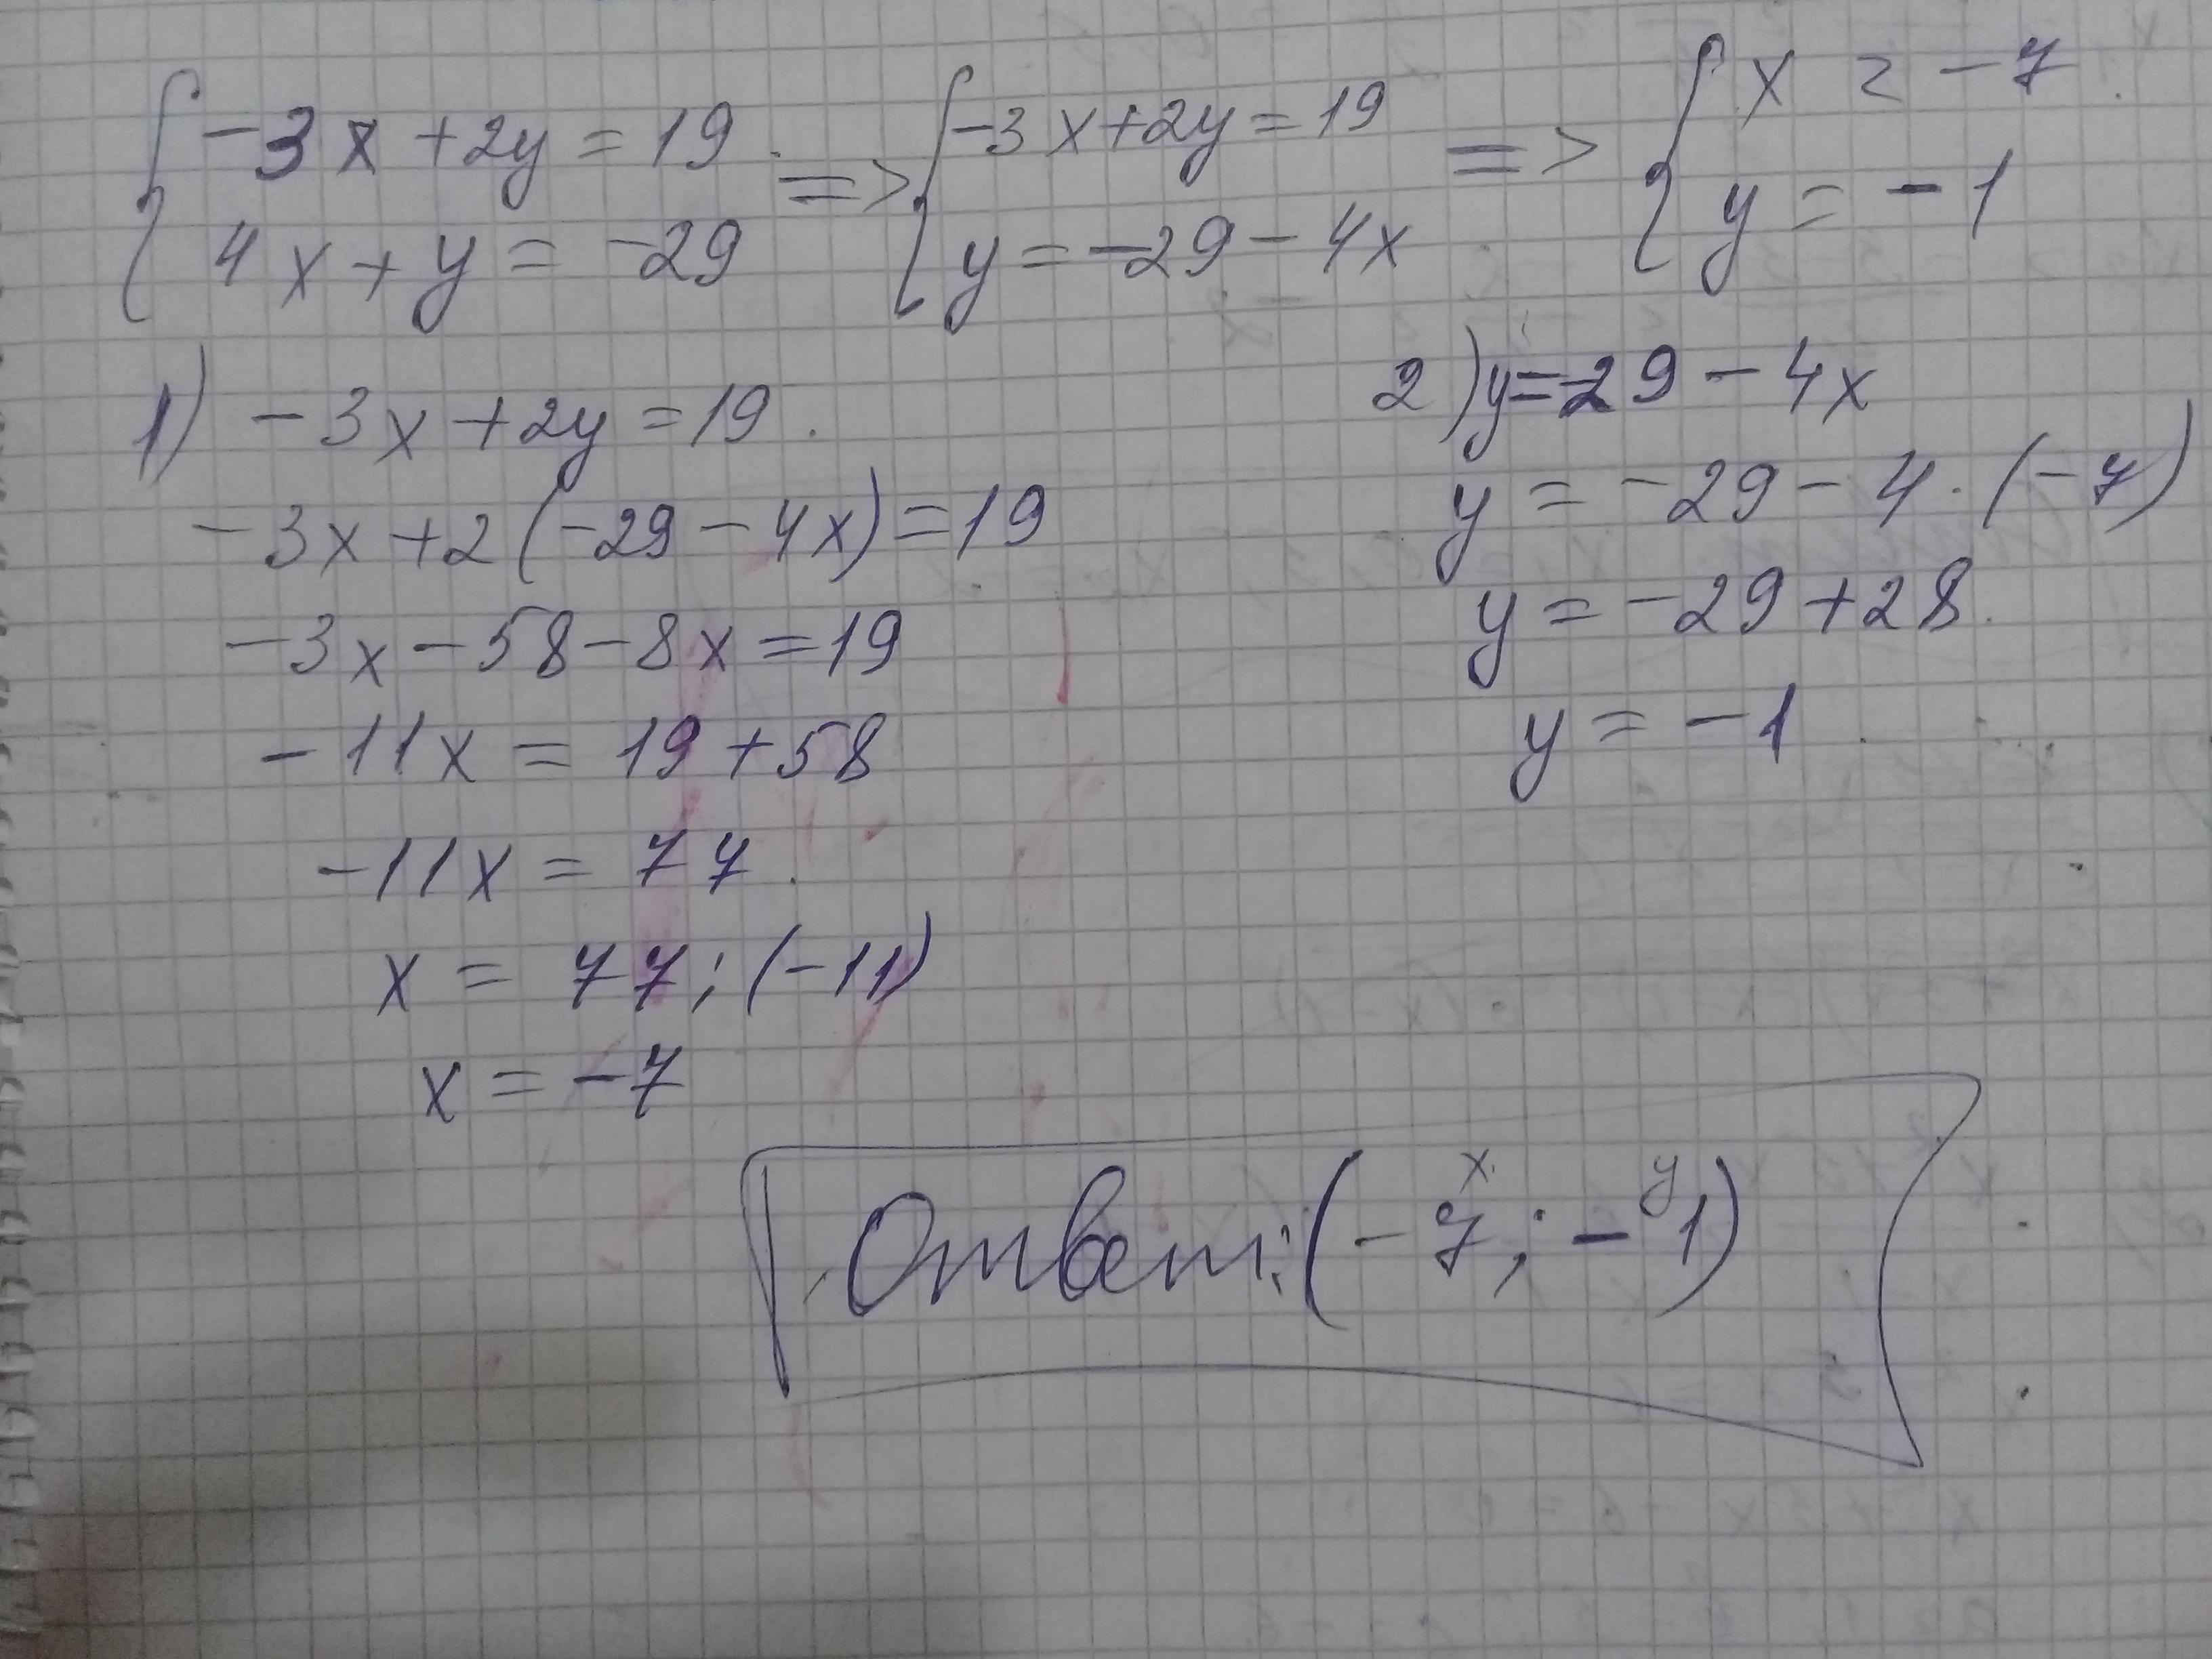 {-3x+2y=19 => {-3x+2y=19 => {x = -7
{4x+y=-29 {y=-29-4x {y=-1
1) -3x+2y=19
-3x+2(-29-4x)=19
-3x-58-8x=19
-11x=19+58
-11x=77
x=77:(-11)
x=-7
2) y=-29-4x
y=-29-4·(-7)
y=-29+28
y=-1
x y
Ответ:(-7;-1)